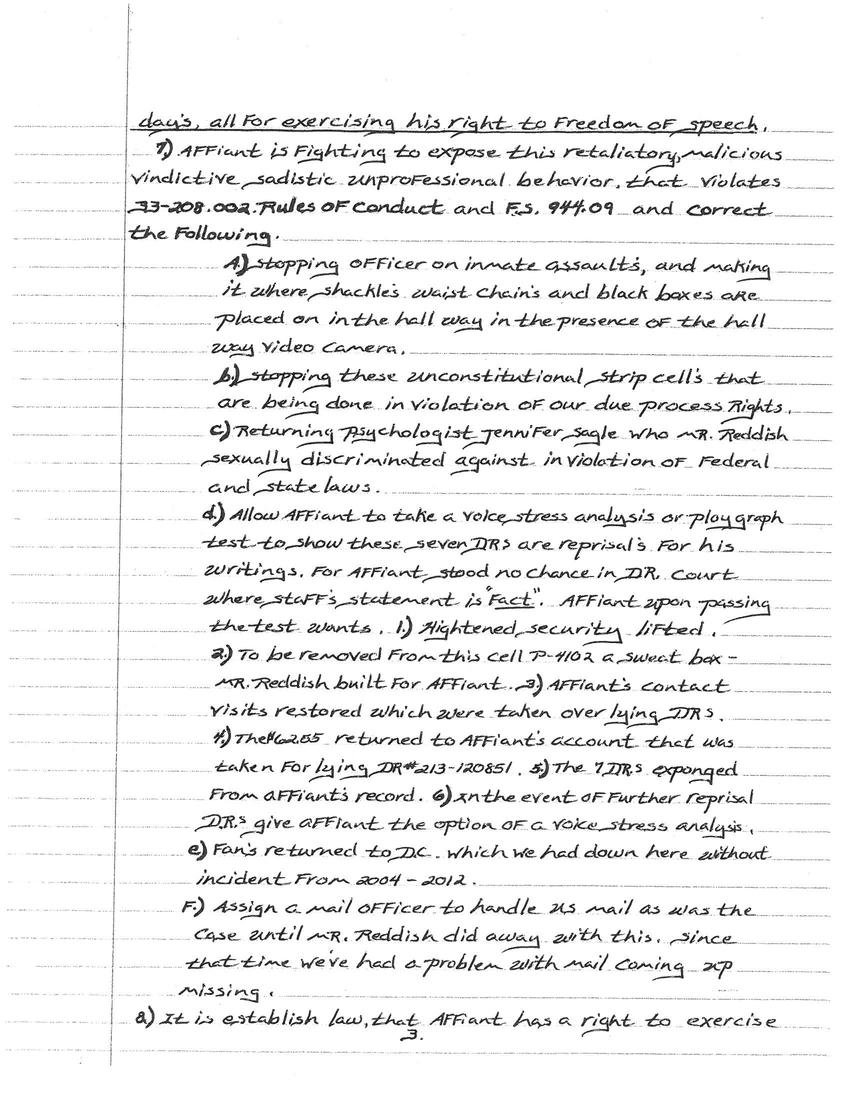 day's, all For exercising his right to Freedom of speech.
7.) AFFiant is Fighting to expose this retaliatory, malicious
vindictive sadistic unproFessional behavior. that violates
33-208.002. Rules of Conduct and F.S. 944.09 and correct
the Following.
A.) stopping officer on inmate assault's, and making
it where shackle's waist chain's and black boxes are
placed on in the hall way in the presence of the hall
way video camera.
b.) stopping these unconstitutional strip cell's that
are being done in violation of our due process Rights.
c) Returning Psychologist Jennifer Sagle who MR. Reddish
sexually discriminated against in violation of Federal
and state laws.
d.) Allow AFFiant to take a voice stress analysis or ploygraph
test to show these seven DRs are reprisal's For his
writings. For AFFiant stood no chance in DR. court
where staff's statement is "Fact". AFFiant upon passing
the test wants. 1.) Hightened security lifted.
2.) To be removed From this cell P-4102 a sweat box -
MR. Reddish built For AFFiant. 3.) AFFiant's contact
visits restored which were taken over lying DRs.
4.) The $62.55 returned to AFFiant's account that was
taken For lying DR# 213-120851. 5.) The 7 DRs exponged
From affiant's record. 6.) In the event of Further reprisal
D.R.s give affiant the option of a voice stress analysis.
e.) Fan's returned to D.C. which we had down here without
incident From 2004 - 2012.
F.) Assign a mail officer to handle us mail as was the
case until MR. Reddish did away with this. since
that time we've had a problem with mail coming up
missing.
8.) It is establish law, that AFFiant has a right to exercise
3.